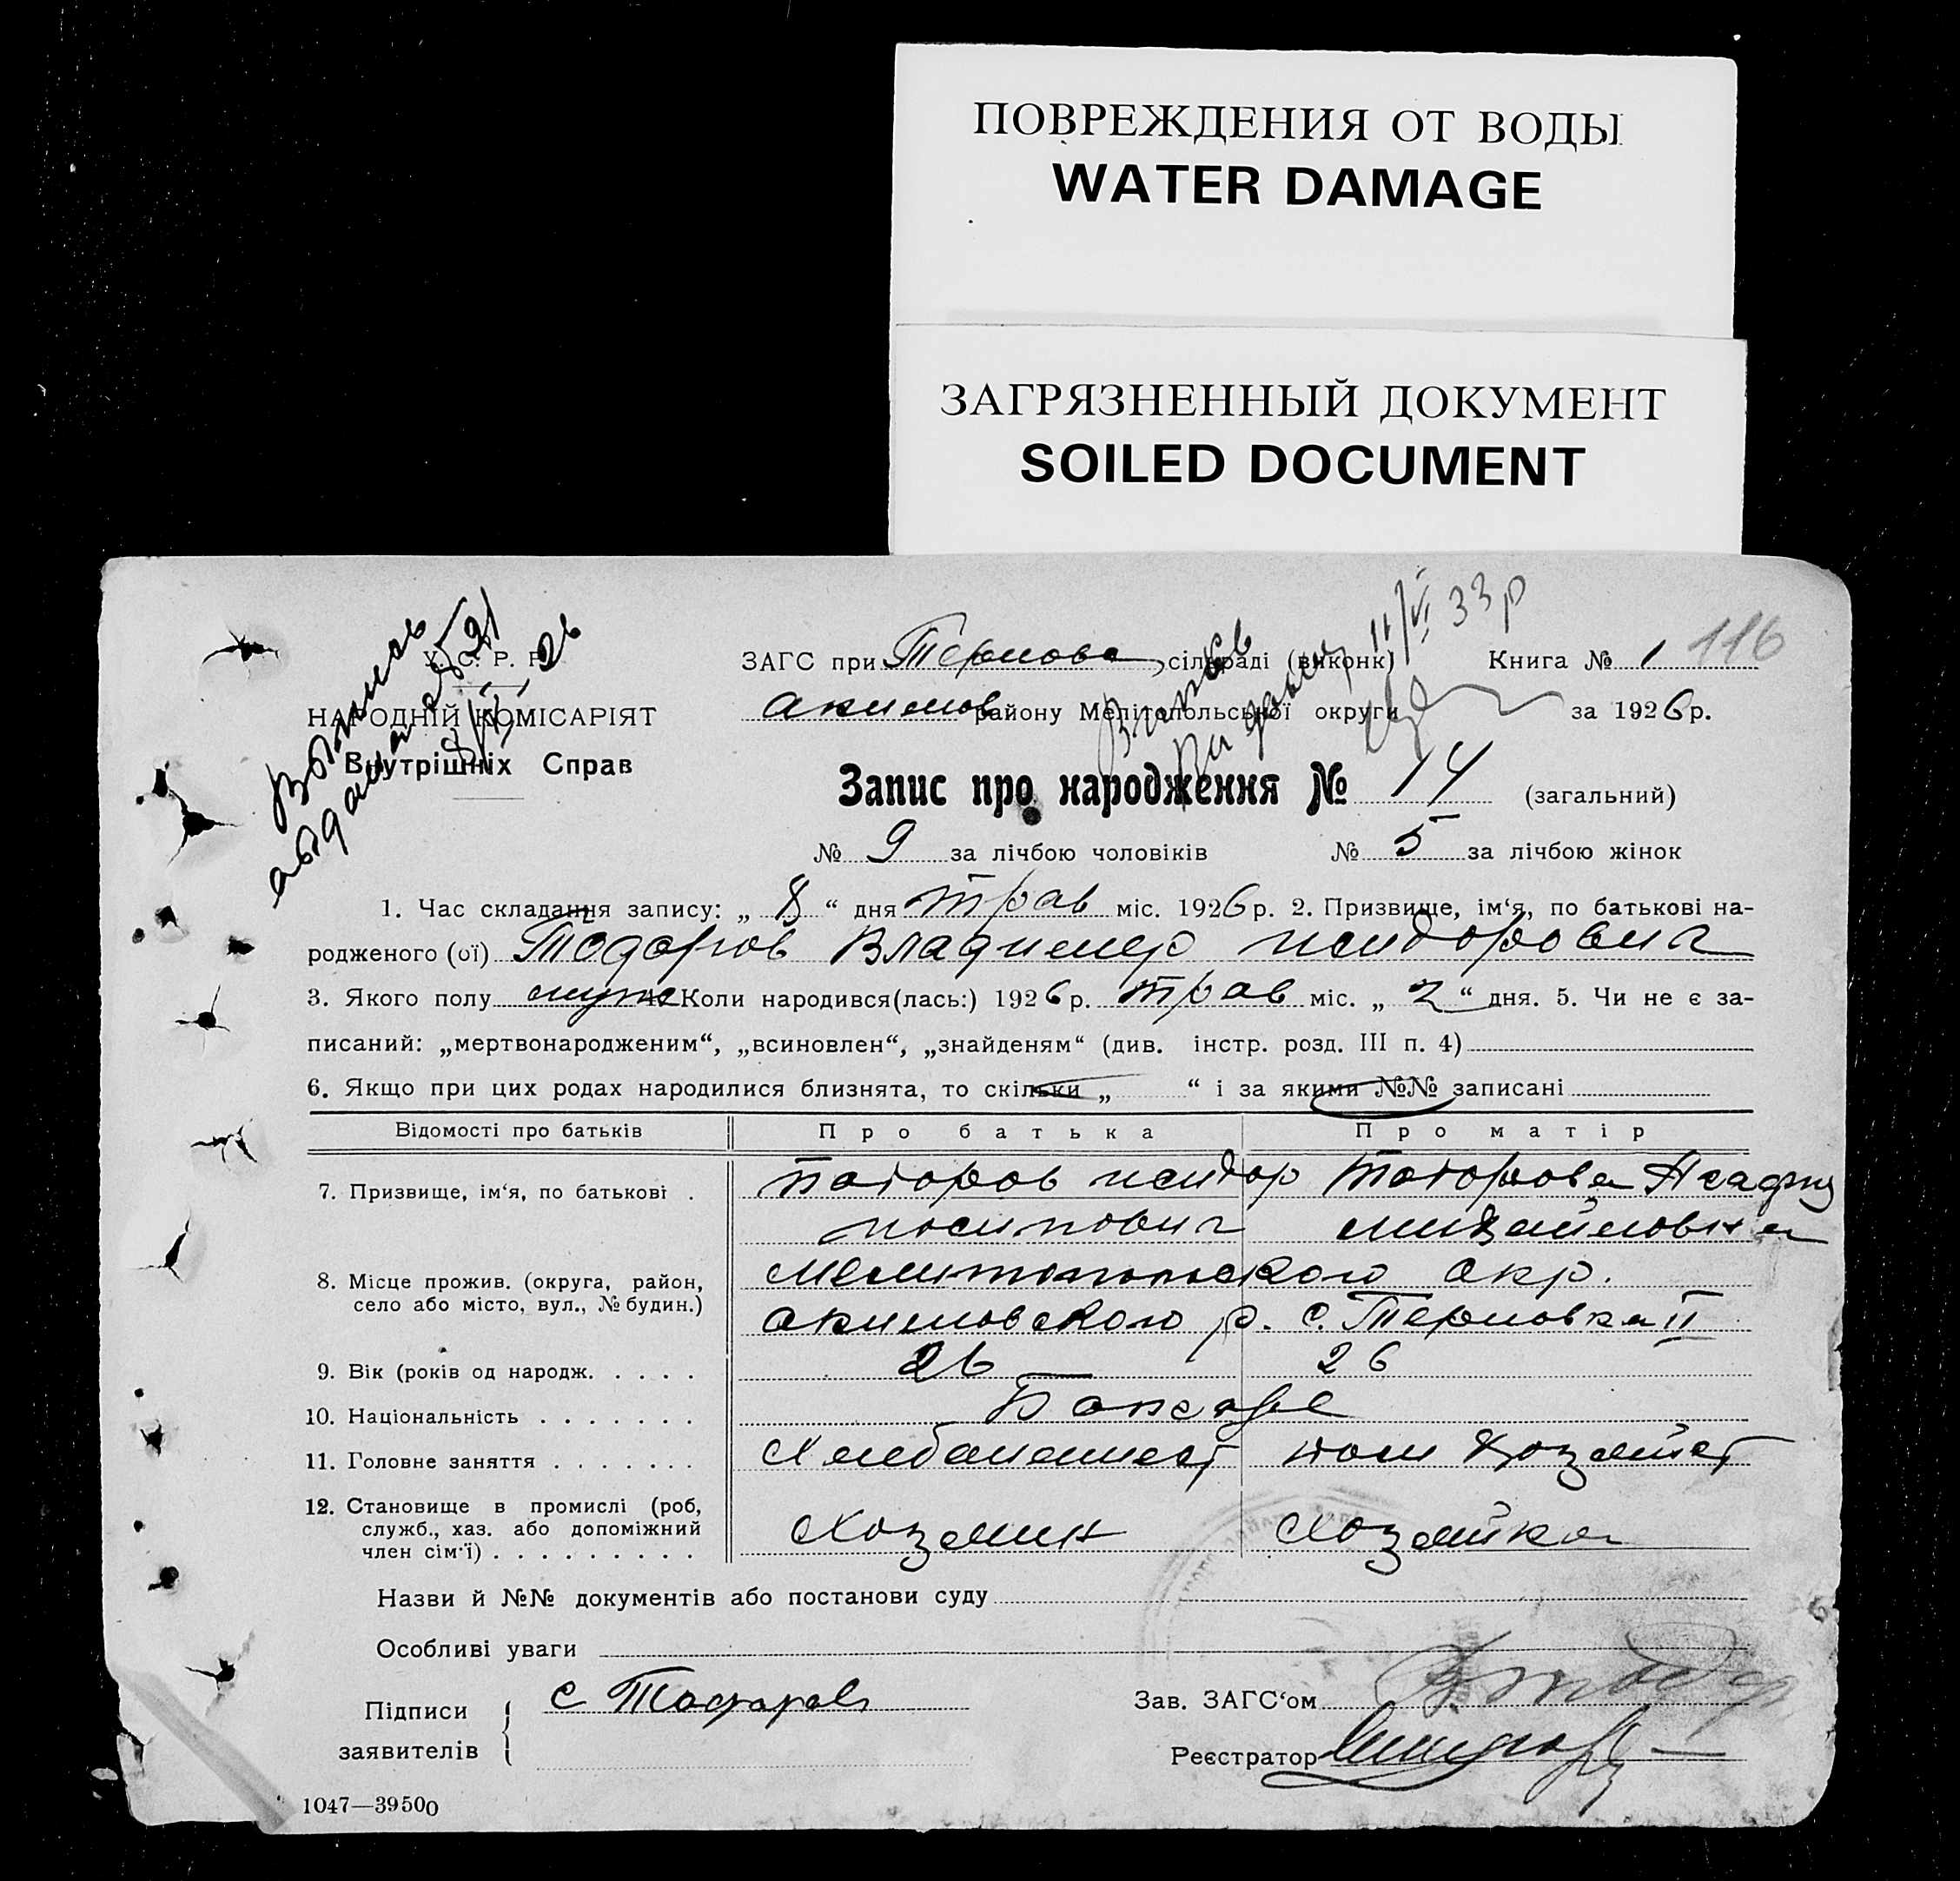 ПОВРЕЖДЕНИЯ ОТ ВОДЫ
WATER DAMAGE
ЗАГРЯЗНЕННЫЙ ДОКУМЕНТ
SOILED DOCUMENT
У. С. Р. Р.
НАРОДНІЙ КОМІСАРІЯТ
Внутрішніх Справ
11/VI 33 р
ЗАГС при Тернова сільраді (виконк) Книга № 1 116
Акимов району Мелітопольської округи за 1926 р.
Запис про народження № 14 (загальний)
№ 9 за лічбою чоловіків № 5 за лічбою жінок
1. Час складання запису: „ 8 “ дня трав міс. 1926 р. 2. Призвище, ім‘я, по батькові на-
родженого (ої) Тодоров Владимер исидорович
3. Якого полу муж 4. Коли народився(лась:) 1926 р. трав міс. „ 2 “ дня. 5. Чи не є за-
писаний: „мертвонародженим“, „всиновлен“, „знайденям“ (див. інстр. розд. III п. 4)
6. Якщо при цих родах народилися близнята, то скільки „ “ і за якими №№ записані
Відомості про батьків Про батька Про матір
7. Призвище, ім‘я, по батькові . Тодоров исидор Тодорова
иосипович михайловна
8. Місце прожив. (округа, район, Мелитопольского окр.
село або місто, вул., № будин.) Акимовского р. с. Терновка II
9. Вік (років од народж. . . . . 26 26
10. Національність . . . . . . .
11. Головне заняття . . . . . . . дом хозяйст
12. Становище в промислі (роб,
служб., хаз. або допоміжний Хозяин Хозяйка
член сім‘ї) . . . . . . . . .
Назви й №№ документів або постанови суду
Особливі уваги
Підписи С Тодоров Зав. ЗАГС‘ом
заявителів Реєстратор
1047—39500